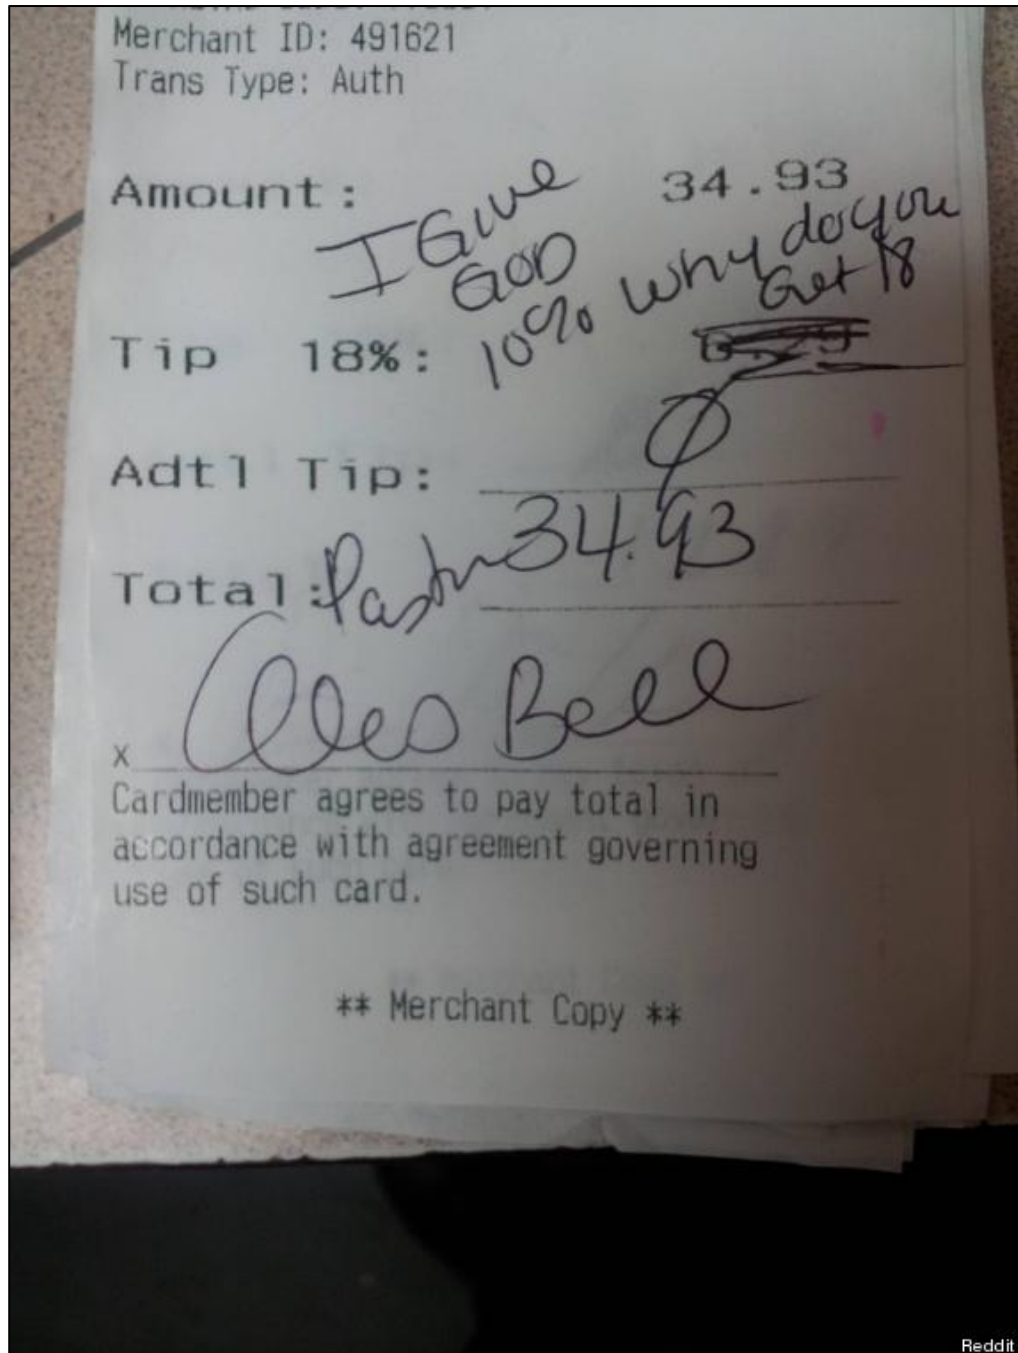 Merchant ID: 491621
Trans Type: Auth
Amount: 34.93
I Give
GOD
10% why do you
Get 18
Tip 18%:
Adtl Tip:
Total: Pastor 34.93
x Bell
Cardmember agrees to pay total in
accordance with agreement governing
use of such card.
** Merchant Copy **
Reddit